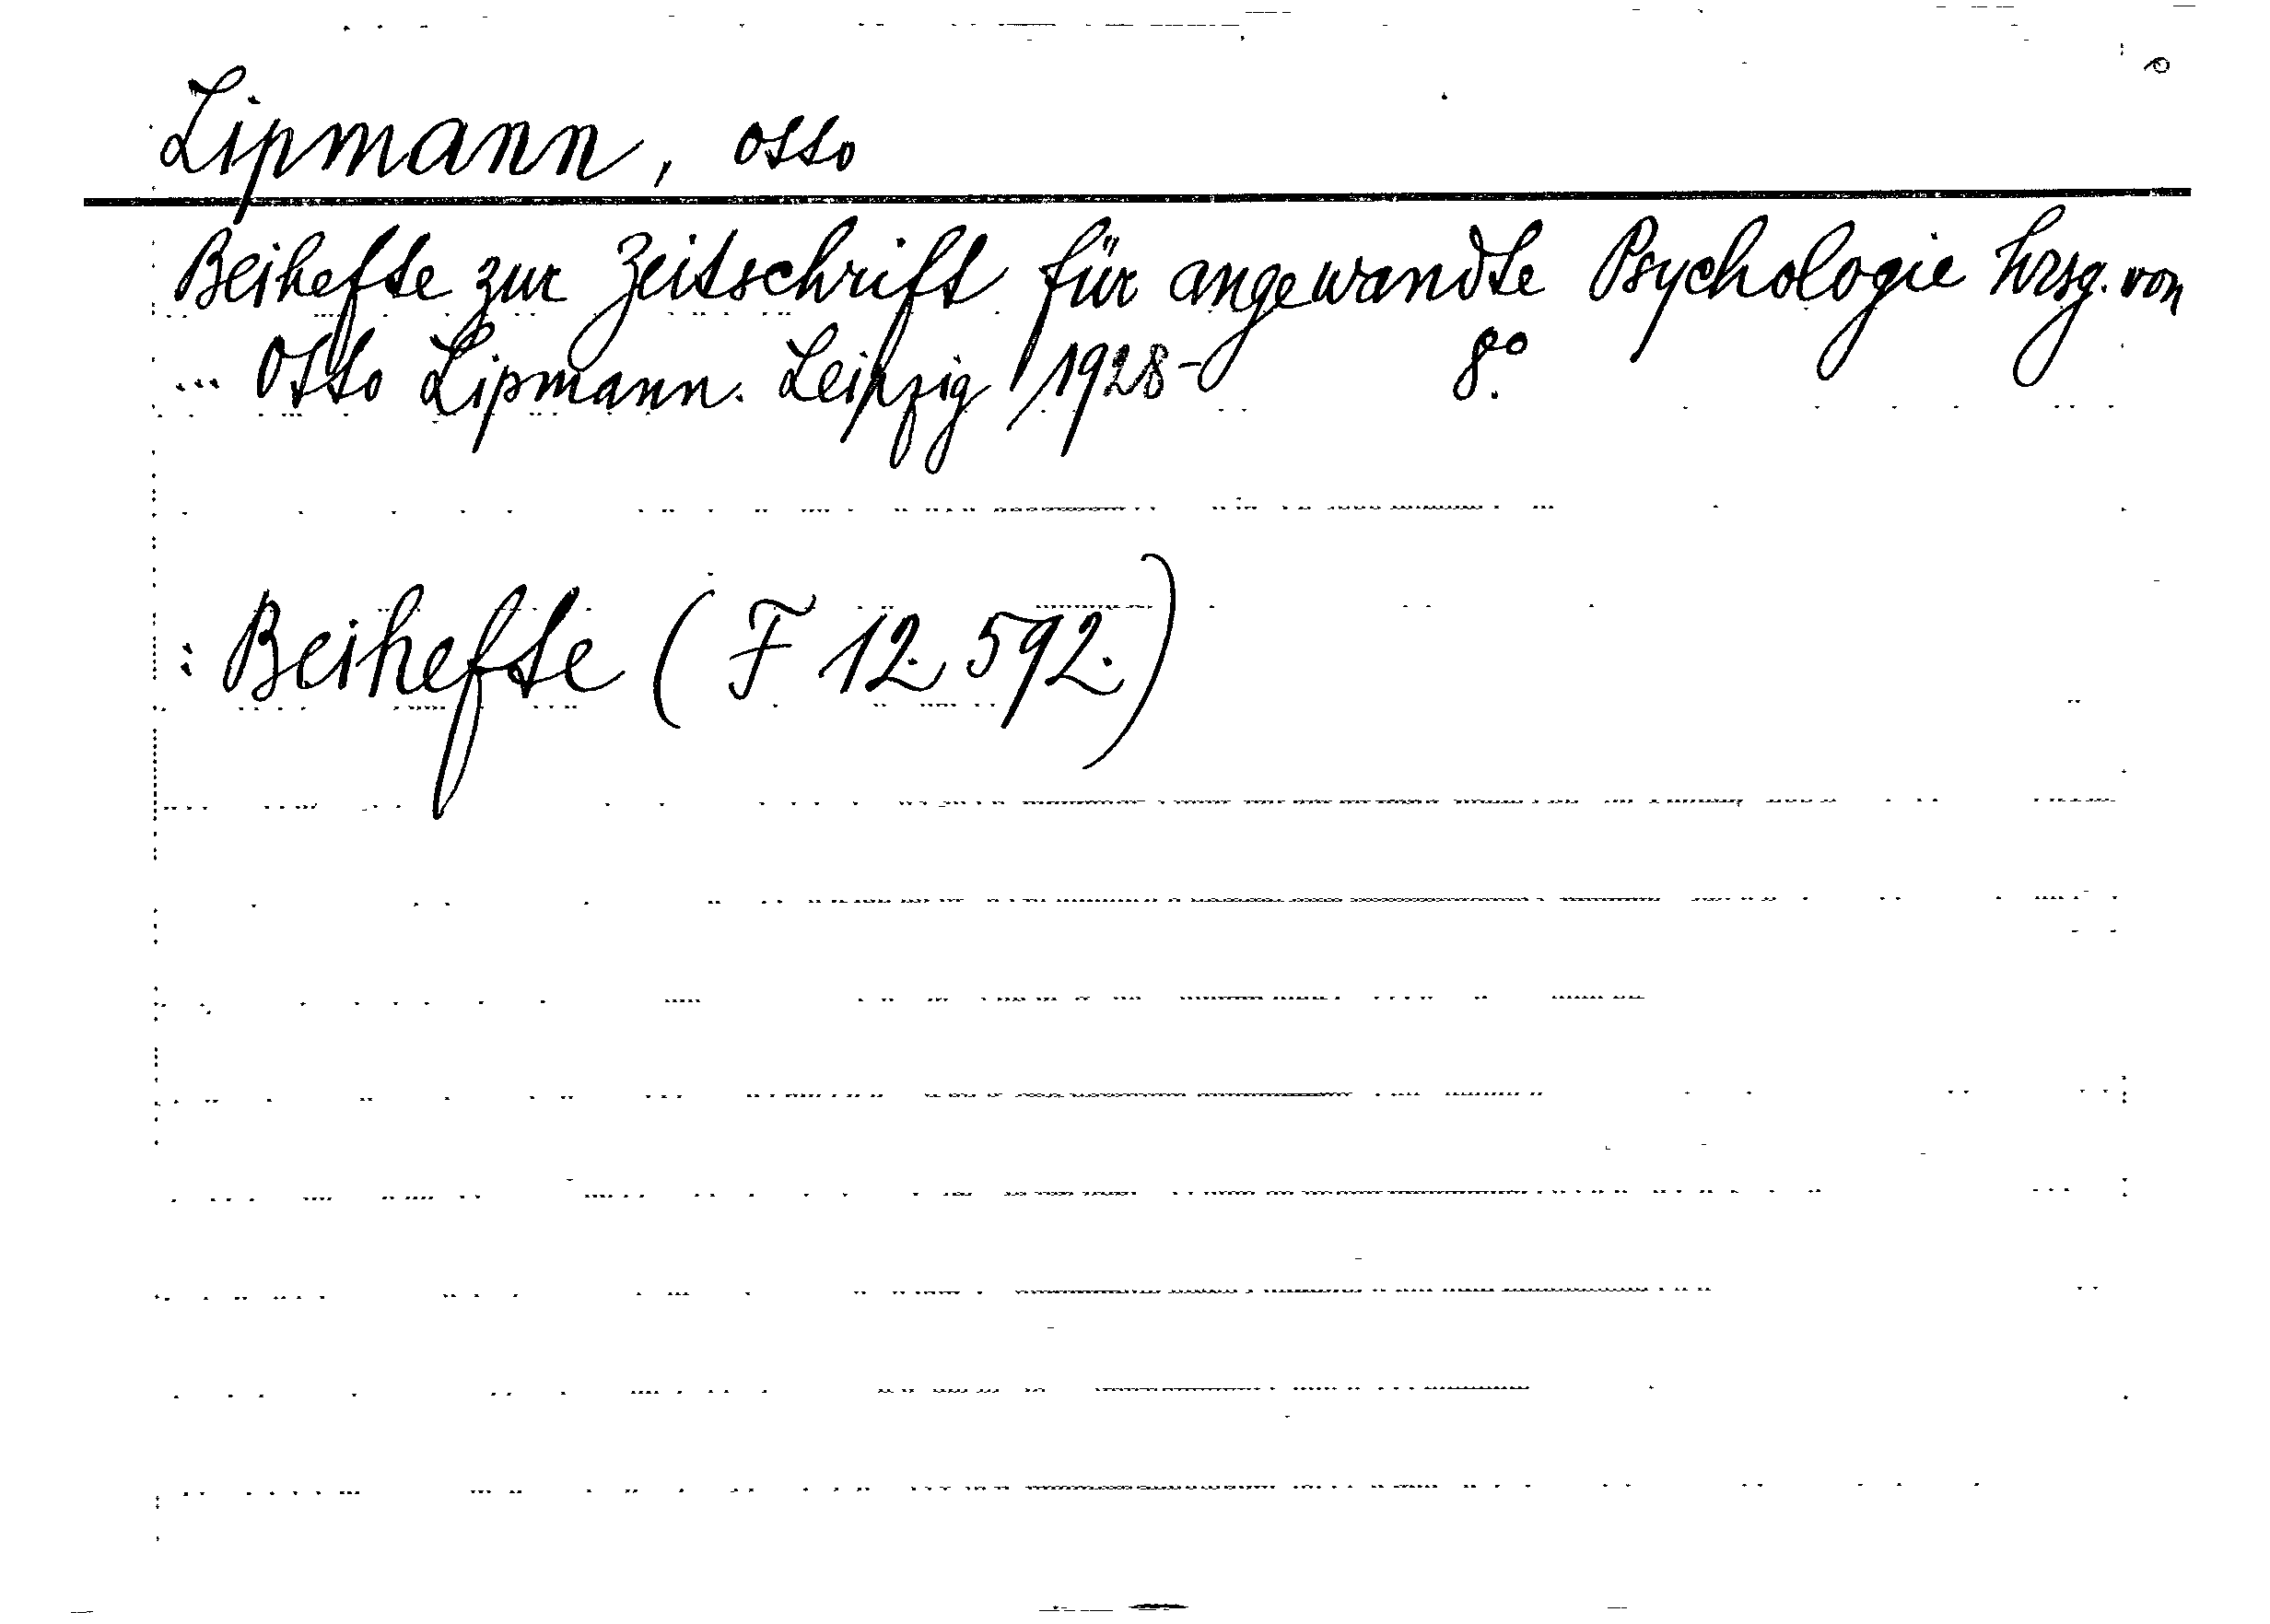 Lipmann, Otto
Beihefte zur Zeitschrift für angewandte Psychologie hrsg. von
... Otto Lipmann. Leipzig 1928- 8°.
: Beihefte (F 12.592.)